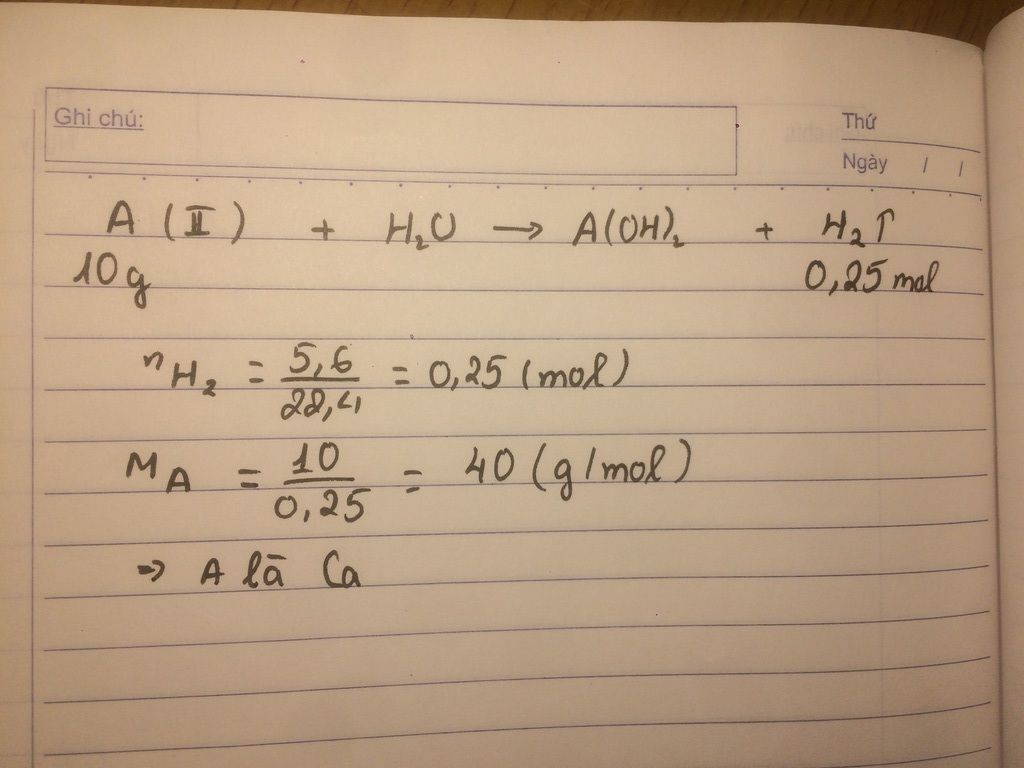 Ghi chú:
Thứ
Ngày / /
A (II) + H₂O → A(OH)₂ + H₂↑
10g 0,25 mol
nH₂ = 5,6/22,4 = 0,25 (mol)
MA = 10/0,25 = 40 (g/mol)
=> A là Ca